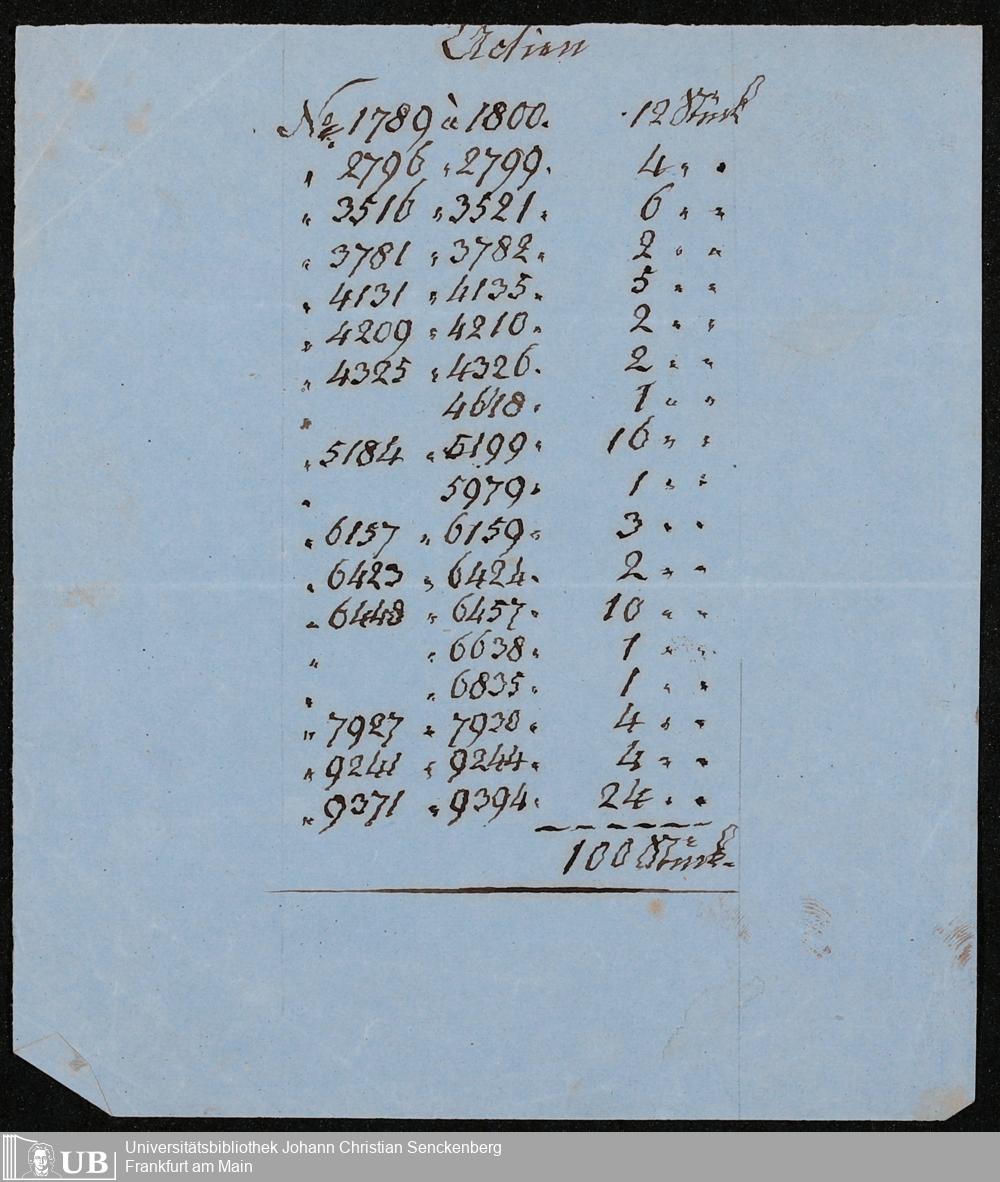 Actien
No. 1789 à 1800. 12 Stück
" 2796 " 2799. 4 " "
" 3516 " 3521. 6 " "
" 3781 " 3782. 2 " "
" 4131 " 4135. 5 " "
" 4209 " 4210. 2 " "
" 4325 " 4326. 2 " "
" 4618. 1 " "
" 5184 " 5199. 16 " "
" 5979. 1 " "
" 6157 " 6159. 3 " "
" 6423 " 6424. 2 " "
" 6448 " 6457. 10 " "
" " 6638. 1 " "
" " 6835. 1 " "
" 7927 " 7930. 4 " "
" 9241 " 9244. 4 " "
" 9371 " 9394. 24 " "
100 Stück.
UB
Universitätsbibliothek Johann Christian Senckenberg
Frankfurt am Main